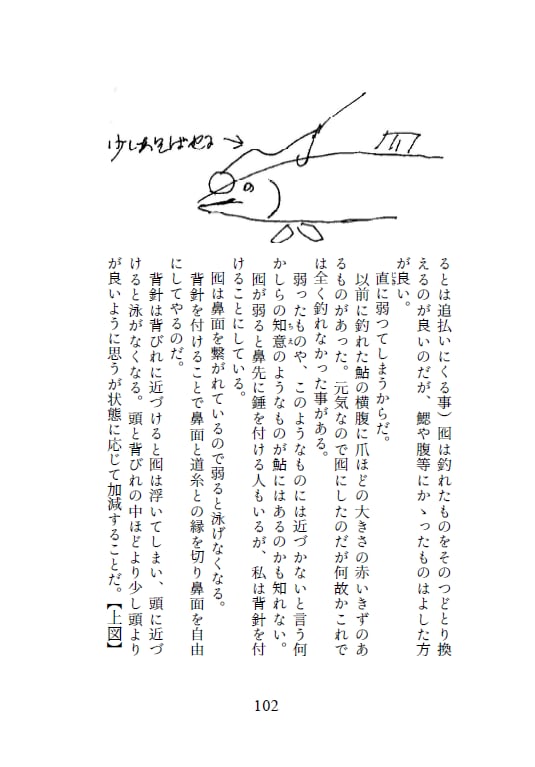 少しあそばせる→
るとは追払いにくる事）囮は釣れたものをそのつどとり換
えるのが良いのだが、鰓や腹等にかゝったものはよした方
が良い。
直に弱つてしまうからだ。
以前に釣れた鮎の横腹に爪ほどの大きさの赤いきずのあ
るものがあった。元気なので囮にしたのだが何故かこれで
は全く釣れなかった事がある。
弱ったものや、このようなものには近づかないと言う何
かしらの知意のようなものが鮎にはあるのかも知れない。
囮が弱ると鼻先に錘を付ける人もいるが、私は背針を付
けることにしている。
囮は鼻面を繋がれているので弱ると泳げなくなる。
背針を付けることで鼻面と道糸との縁を切り鼻面を自由
にしてやるのだ。
背針は背びれに近づけると囮は浮いてしまい、頭に近づ
けると泳がなくなる。頭と背びれの中ほどより少し頭より
が良いように思うが状態に応じて加減することだ。【上図】
102